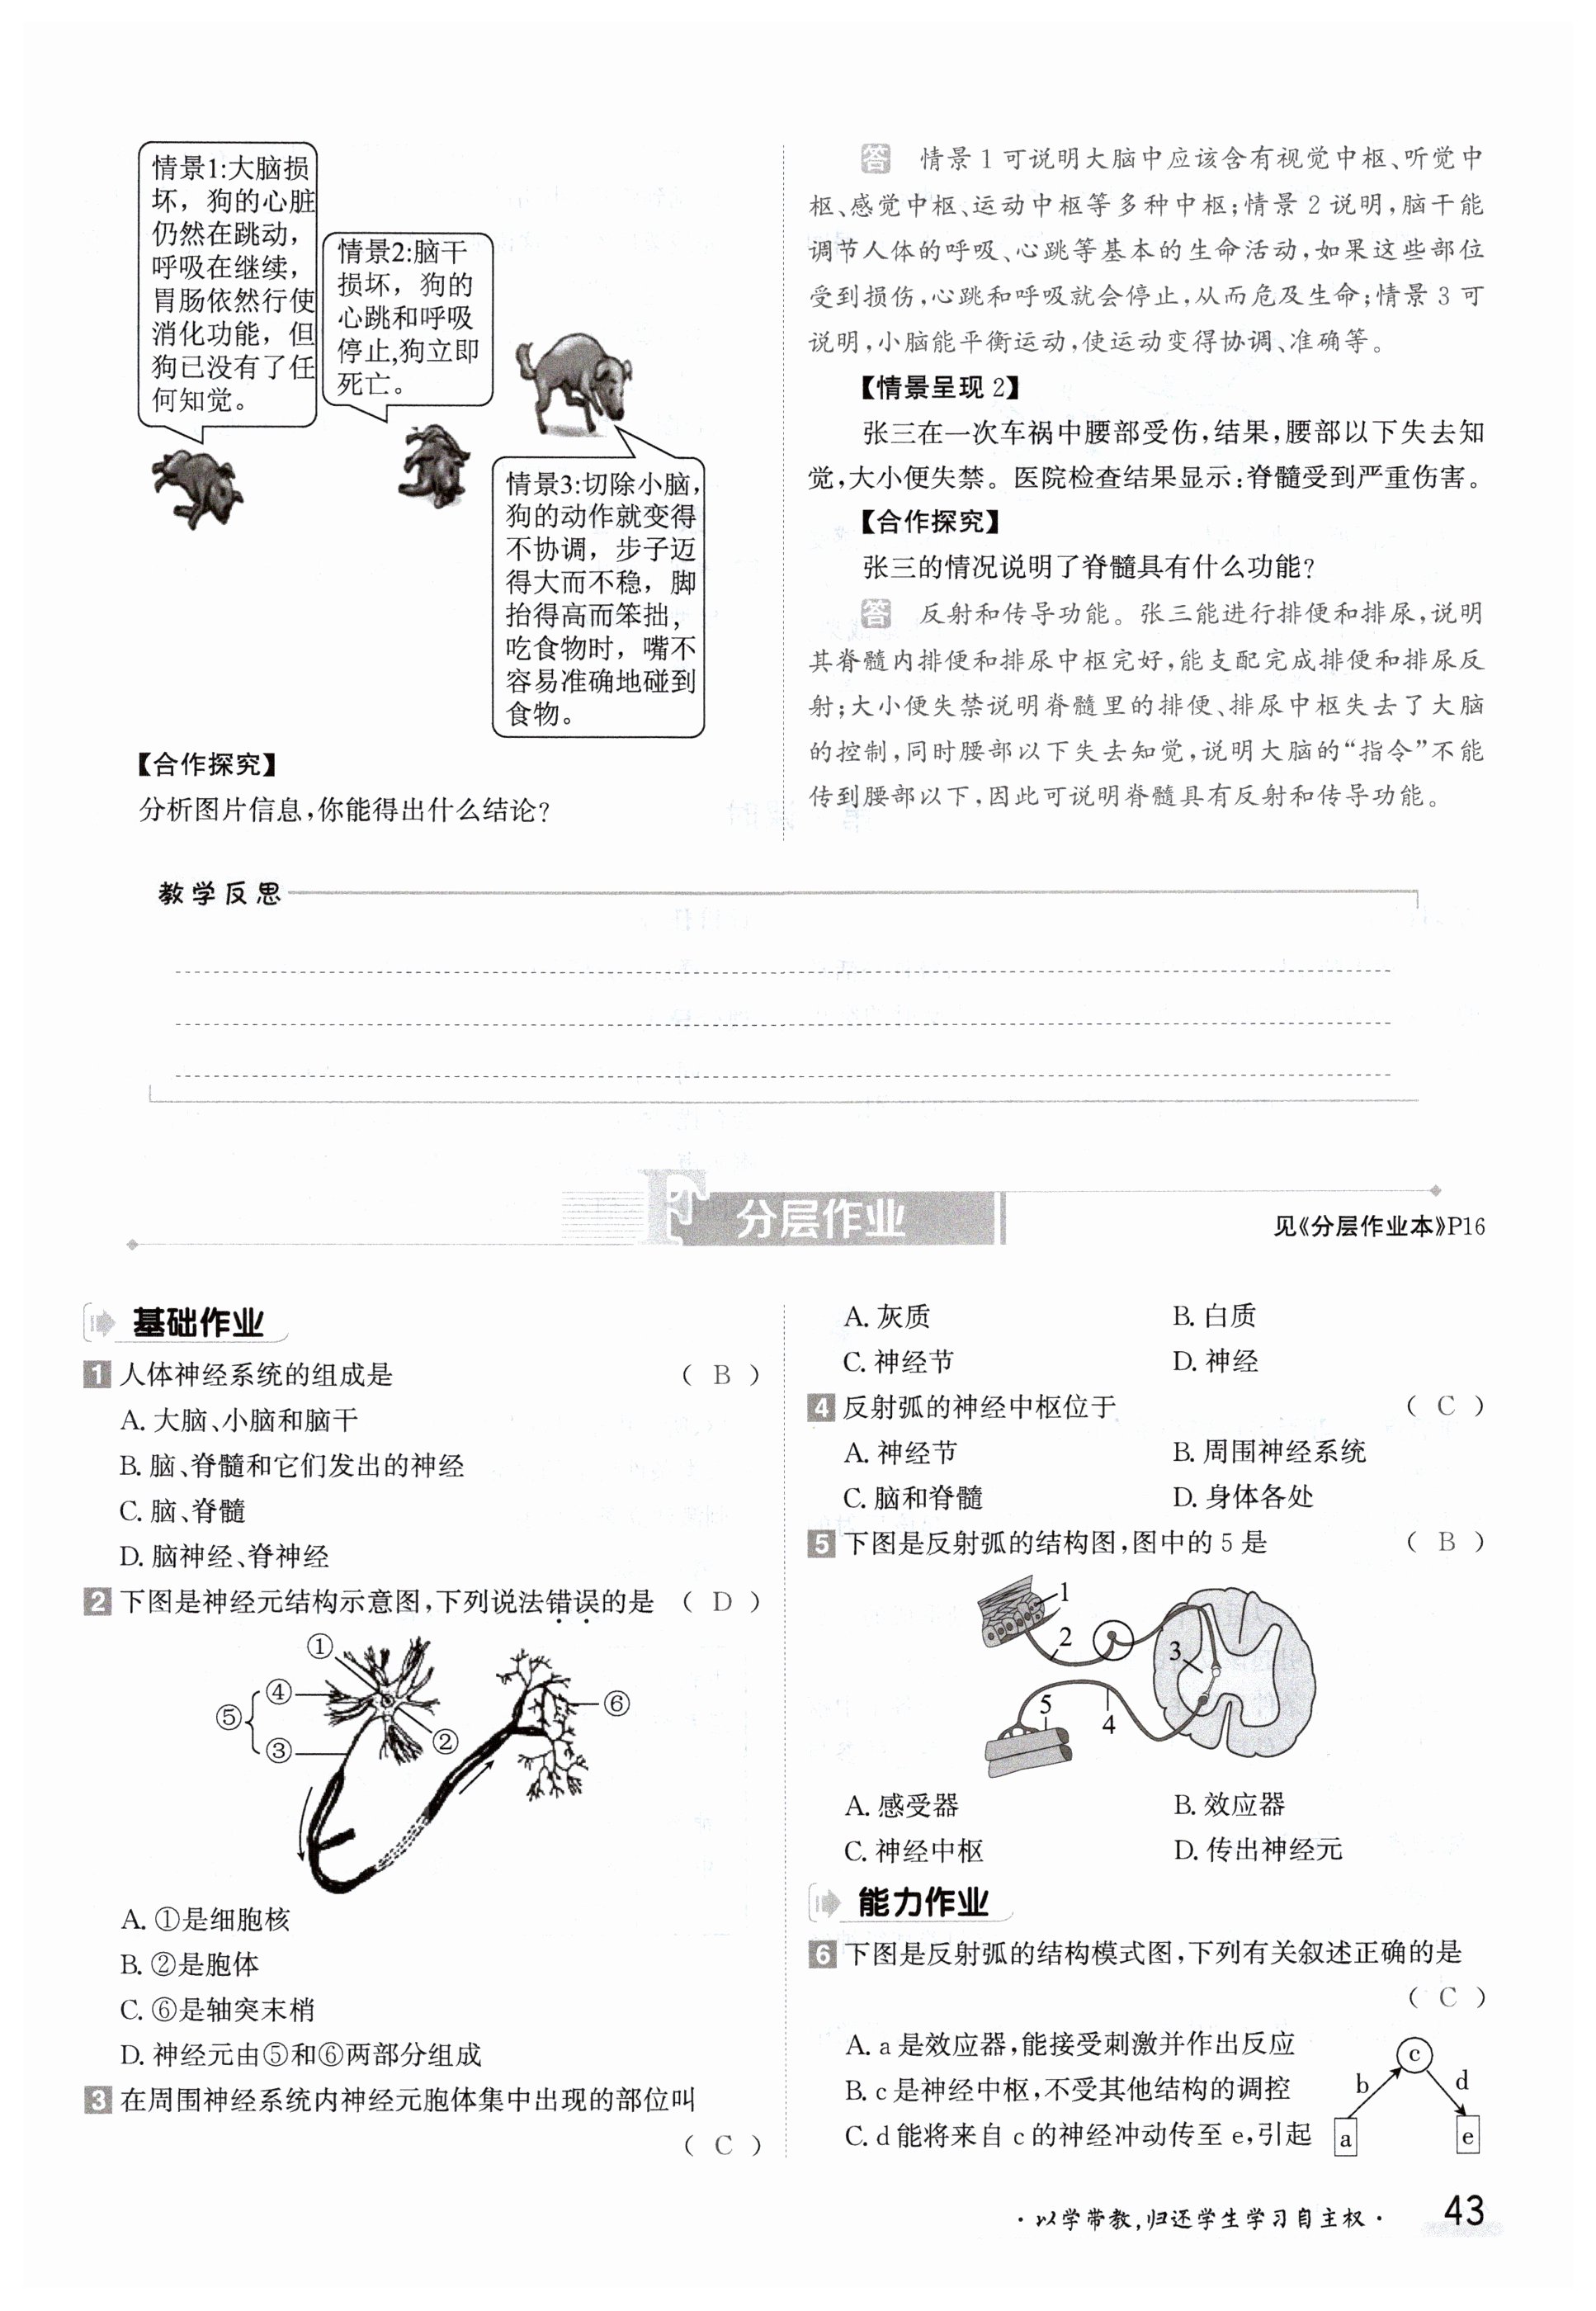 情景1:大脑损
坏，狗的心脏
仍然在跳动，
呼吸在继续，
胃肠依然行使
消化功能，但
狗已没有了任
何知觉。
情景2:脑干
损坏，狗的
心跳和呼吸
停止,狗立即
死亡。
情景3:切除小脑，
狗的动作就变得
不协调，步子迈
得大而不稳，脚
抬得高而笨拙，
吃食物时，嘴不
容易准确地碰到
食物。
【合作探究】
分析图片信息,你能得出什么结论?
答 情景1可说明大脑中应该含有视觉中枢、听觉中
枢、感觉中枢、运动中枢等多种中枢;情景2说明,脑干能
调节人体的呼吸、心跳等基本的生命活动,如果这些部位
受到损伤,心跳和呼吸就会停止,从而危及生命;情景3可
说明,小脑能平衡运动,使运动变得协调、准确等。
【情景呈现2】
张三在一次车祸中腰部受伤,结果,腰部以下失去知
觉,大小便失禁。医院检查结果显示:脊髓受到严重伤害。
【合作探究】
张三的情况说明了脊髓具有什么功能?
答 反射和传导功能。张三能进行排便和排尿,说明
其脊髓内排便和排尿中枢完好,能支配完成排便和排尿反
射;大小便失禁说明脊髓里的排便、排尿中枢失去了大脑
的控制,同时腰部以下失去知觉,说明大脑的“指令”不能
传到腰部以下,因此可说明脊髓具有反射和传导功能。
教学反思
F 分层作业
见《分层作业本》P16
基础作业
1 人体神经系统的组成是 ( B )
A. 大脑、小脑和脑干
B. 脑、脊髓和它们发出的神经
C. 脑、脊髓
D. 脑神经、脊神经
2 下图是神经元结构示意图,下列说法错误的是 ( D )
①
④
⑤
③
②
⑥
A. ①是细胞核
B. ②是胞体
C. ⑥是轴突末梢
D. 神经元由⑤和⑥两部分组成
3 在周围神经系统内神经元胞体集中出现的部位叫
( C )
A. 灰质 B. 白质
C. 神经节 D. 神经
4 反射弧的神经中枢位于 ( C )
A. 神经节 B. 周围神经系统
C. 脑和脊髓 D. 身体各处
5 下图是反射弧的结构图,图中的5是 ( B )
1
2
3
5
4
A. 感受器 B. 效应器
C. 神经中枢 D. 传出神经元
能力作业
6 下图是反射弧的结构模式图,下列有关叙述正确的是
( C )
A. a是效应器,能接受刺激并作出反应
B. c是神经中枢,不受其他结构的调控
C. d能将来自c的神经冲动传至e,引起
c
b
d
a
e
·以学带教,归还学生学习自主权·
43